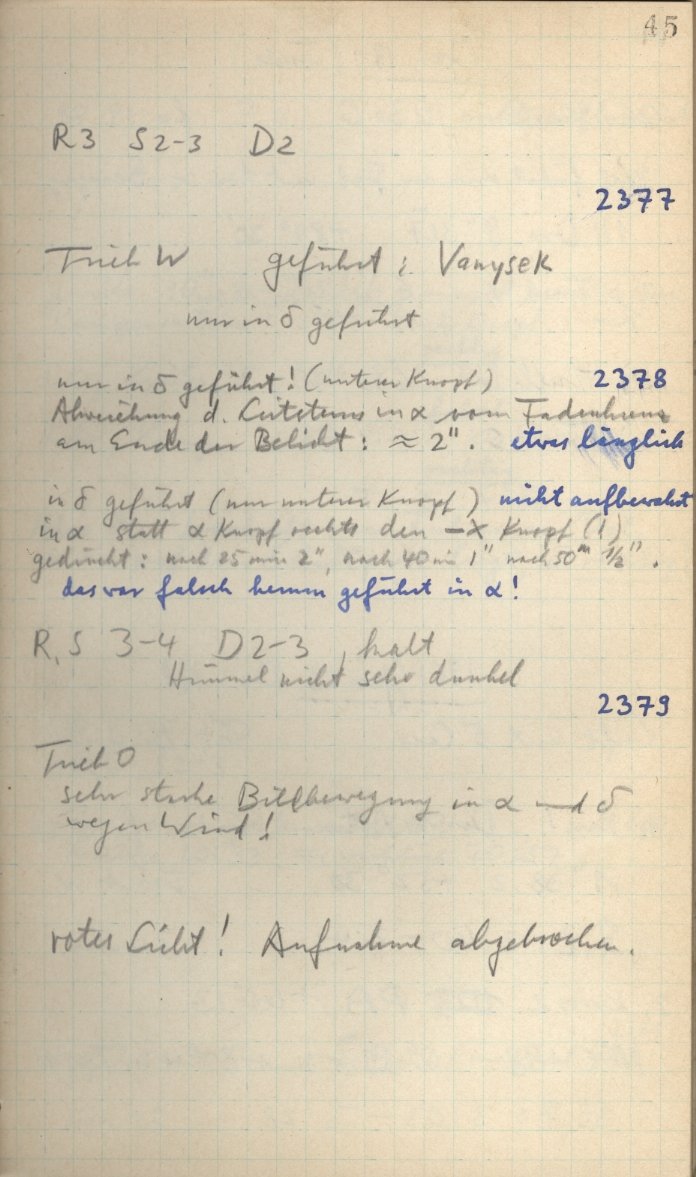 45
R3 S2-3 D2
2377
Trieb W geführt: Vanysek
nur in δ geführt
nur in δ geführt! (unterer Knopf) 2378
Abweichung d. Leitsterns in α vom Fadenkreuz
am Ende der Belicht: ≈ 2". etwas länglich
in δ geführt (nur unterer Knopf) nicht aufbewahrt
in α statt α Knopf rechts den Knopf (!)
gedrückt: nach 25 min 2", nach 40 min 1" nach 50ᵐ ½".
das war falsch herum geführt in α!
R, S 3-4 D2-3, kalt
Himmel nicht sehr dunkel
2379
Trieb O
sehr starke Bildbewegung in α und δ
wegen Wind!
rotes Licht! Aufnahme abgebrochen.